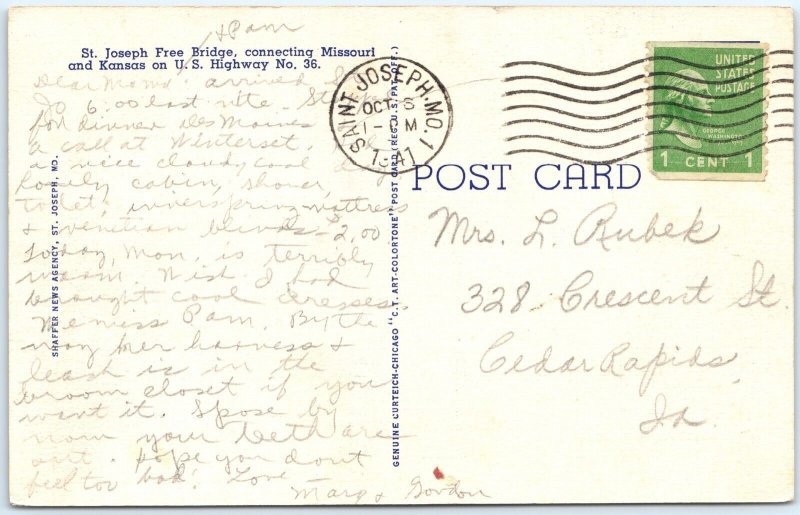 St. Joseph Free Bridge, connecting Missouri
and Kansas on U. S. Highway No. 36.
& Pam
Dear Mom, arrived St.
Jo 6:00 last nite. St
for dinner Des Moines
a call at Winterset
a nice cloudy cool
lovely cabin, shower,
toilet, innerspring mattress
& venetian blinds $2.00.
Today, Mon, is terribly
warm. Wish I had
brought cool dresses.
We miss Pam. By the
way her harness &
leash is in the
broom closet if you
want it. Spose by
now your teeth are
out. Hope you don't
feel too bad. Love
Marg & Gordon
SHAFFER NEWS AGENCY, ST. JOSEPH, MO.
GENUINE CURTEICH-CHICAGO "C. T. ART-COLORTONE" POST CARD (REG. U. S. PAT. OFF.)
SAINT JOSEPH, MO. 1
OCT 6
1941
UNITED
STATES
POSTAGE
GEORGE WASHINGTON
1 CENT 1
POST CARD
Mrs. L. Rubek
328 Crescent St.
Cedar Rapids,
Ia.